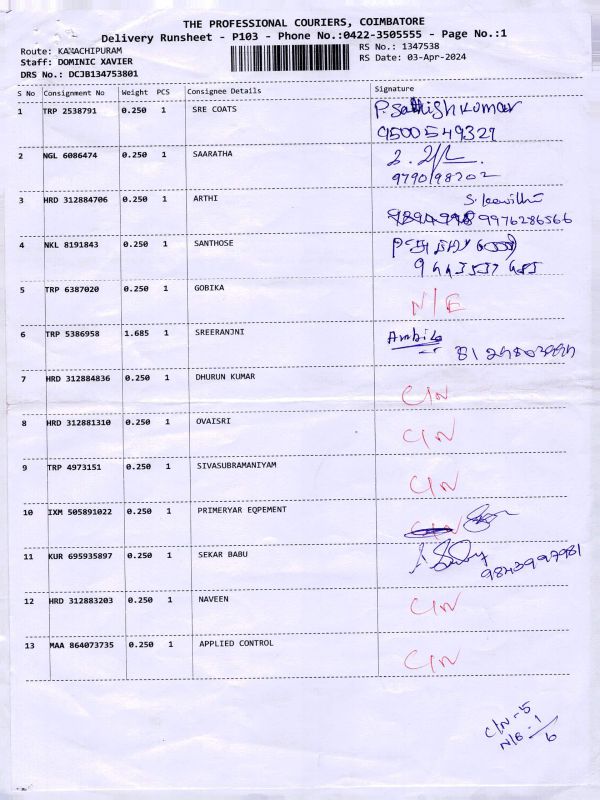 THE PROFESSIONAL COURIERS, COIMBATORE
Delivery Runsheet - P103 - Phone No.:0422-3505555 - Page No.:1
Route: KANACHIPURAM
RS No.: 1347538
Staff: DOMINIC XAVIER
RS Date: 03-Apr-2024
DRS No.: DCJB134753801
S No Consignment No Weight PCS Consignee Details Signature
1 TRP 2538791 0.250 1 SRE COATS P. Sathish kumar
9500549327
2 NGL 6086474 0.250 1 SAARATHA
9790198202
3 HRD 312884706 0.250 1 ARTHI
9976286566
4 NKL 8191843 0.250 1 SANTHOSE
5 TRP 6387020 0.250 1 GOBIKA N/E
6 TRP 5386958 1.685 1 SREERANJNI Ambika
7 HRD 312884836 0.250 1 DHURUN KUMAR C/N
8 HRD 312881310 0.250 1 OVAISRI C/N
9 TRP 4973151 0.250 1 SIVASUBRAMANIYAM C/N
10 IXM 505891022 0.250 1 PRIMERYAR EQPEMENT C/N
11 KUR 695935897 0.250 1 SEKAR BABU
9843997981
12 HRD 312883203 0.250 1 NAVEEN C/N
13 MAA 864073735 0.250 1 APPLIED CONTROL C/N
C/N - 5
N/E - 1
6